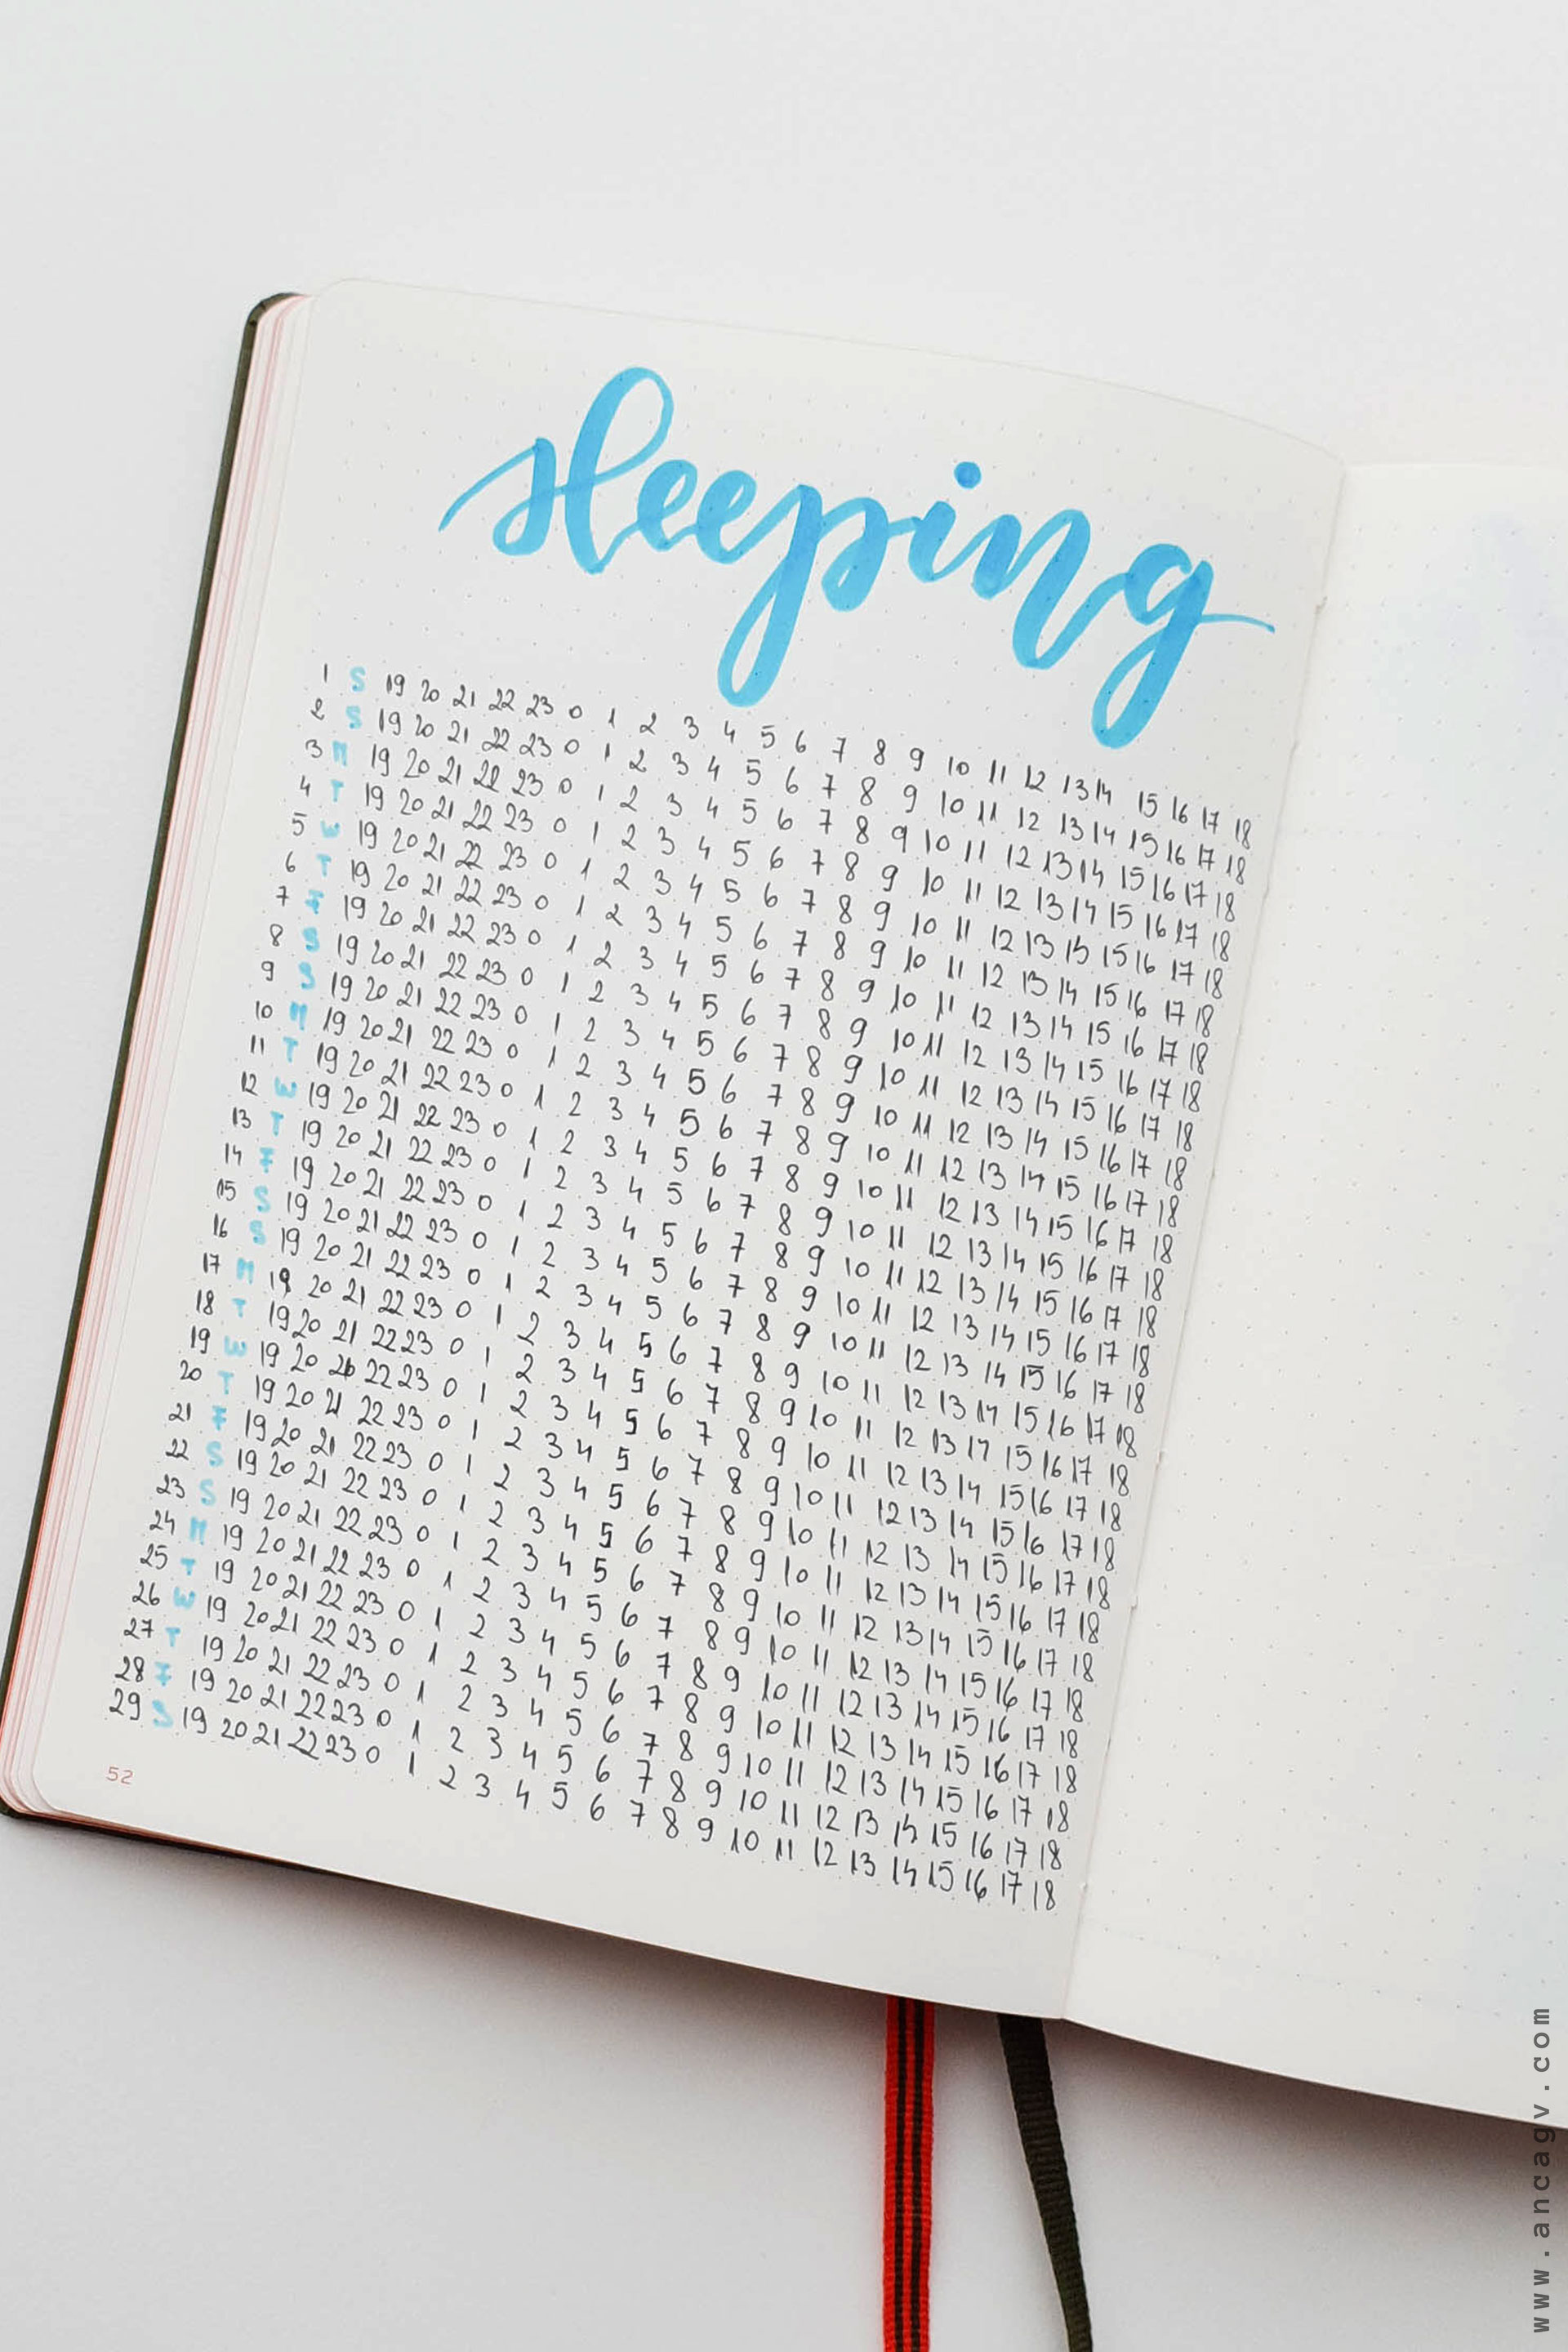 sleeping
1 S 19 20 21 22 23 0 1 2 3 4 5 6 7 8 9 10 11 12 13 14 15 16 17 18
2 S 19 20 21 22 23 0 1 2 3 4 5 6 7 8 9 10 11 12 13 14 15 16 17 18
3 M 19 20 21 22 23 0 1 2 3 4 5 6 7 8 9 10 11 12 13 14 15 16 17 18
4 T 19 20 21 22 23 0 1 2 3 4 5 6 7 8 9 10 11 12 13 14 15 16 17 18
5 W 19 20 21 22 23 0 1 2 3 4 5 6 7 8 9 10 11 12 13 15 15 16 17 18
6 T 19 20 21 22 23 0 1 2 3 4 5 6 7 8 9 10 11 12 13 14 15 16 17 18
7 F 19 20 21 22 23 0 1 2 3 4 5 6 7 8 9 10 11 12 13 14 15 16 17 18
8 S 19 20 21 22 23 0 1 2 3 4 5 6 7 8 9 10 11 12 13 14 15 16 17 18
9 S 19 20 21 22 23 0 1 2 3 4 5 6 7 8 9 10 11 12 13 14 15 16 17 18
10 M 19 20 21 22 23 0 1 2 3 4 5 6 7 8 9 10 11 12 13 14 15 16 17 18
11 T 19 20 21 22 23 0 1 2 3 4 5 6 7 8 9 10 11 12 13 14 15 16 17 18
12 W 19 20 21 22 23 0 1 2 3 4 5 6 7 8 9 10 11 12 13 14 15 16 17 18
13 T 19 20 21 22 23 0 1 2 3 4 5 6 7 8 9 10 11 12 13 14 15 16 17 18
14 F 19 20 21 22 23 0 1 2 3 4 5 6 7 8 9 10 11 12 13 14 15 16 17 18
15 S 19 20 21 22 23 0 1 2 3 4 5 6 7 8 9 10 11 12 13 14 15 16 17 18
16 S 19 20 21 22 23 0 1 2 3 4 5 6 7 8 9 10 11 12 13 14 15 16 17 18
17 M 19 20 21 22 23 0 1 2 3 4 5 6 7 8 9 10 11 12 13 14 15 16 17 18
18 T 19 20 21 22 23 0 1 2 3 4 5 6 7 8 9 10 11 12 13 14 15 16 17 18
19 W 19 20 21 22 23 0 1 2 3 4 5 6 7 8 9 10 11 12 13 14 15 16 17 18
20 T 19 20 21 22 23 0 1 2 3 4 5 6 7 8 9 10 11 12 13 14 15 16 17 18
21 F 19 20 21 22 23 0 1 2 3 4 5 6 7 8 9 10 11 12 13 14 15 16 17 18
22 S 19 20 21 22 23 0 1 2 3 4 5 6 7 8 9 10 11 12 13 14 15 16 17 18
23 S 19 20 21 22 23 0 1 2 3 4 5 6 7 8 9 10 11 12 13 14 15 16 17 18
24 M 19 20 21 22 23 0 1 2 3 4 5 6 7 8 9 10 11 12 13 14 15 16 17 18
25 T 19 20 21 22 23 0 1 2 3 4 5 6 7 8 9 10 11 12 13 14 15 16 17 18
26 W 19 20 21 22 23 0 1 2 3 4 5 6 7 8 9 10 11 12 13 14 15 16 17 18
27 T 19 20 21 22 23 0 1 2 3 4 5 6 7 8 9 10 11 12 13 14 15 16 17 18
28 F 19 20 21 22 23 0 1 2 3 4 5 6 7 8 9 10 11 12 13 14 15 16 17 18
29 S 19 20 21 22 23 0 1 2 3 4 5 6 7 8 9 10 11 12 13 14 15 16 17 18
52
www.ancagv.com